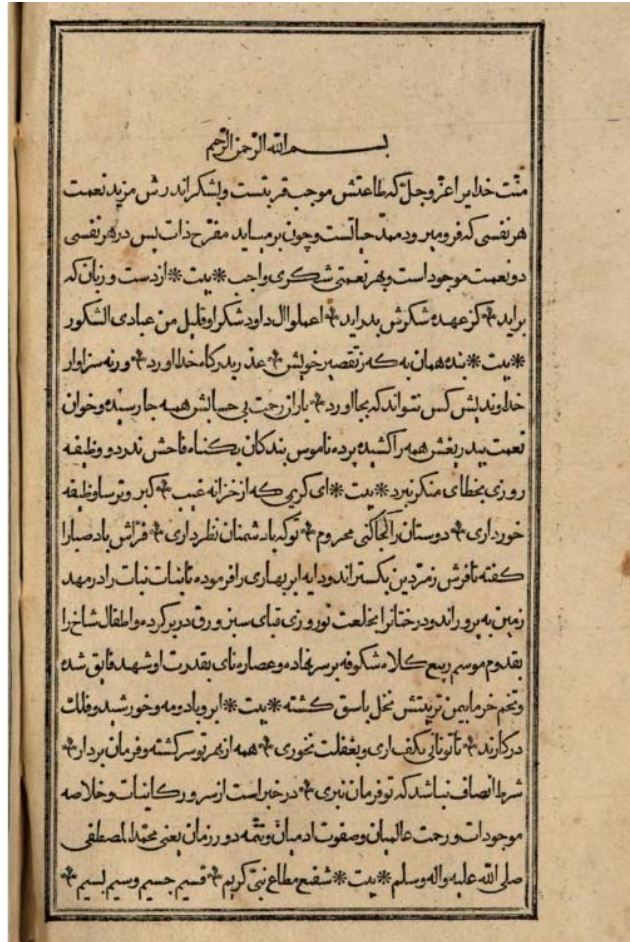 بسم الله الرحمن الرحیم
منّت خدایرا عزّ وجلّ که طاعتش موجب قربتست وبشکر اندرش مزید نعمت
هر نفسی که فرو میرود ممدّ حیاتست وچون بر میاید مفرّح ذات پس در هر نفسی
دو نعمت موجود است وبهر نعمتی شکری واجب * بیت * از دست و زبان که
براید * کز عهده شکرش بدر اید * اعملوا ال داود شکرا وقلیل من عبادی الشکور
* بیت * بنده همان به که ز تقصیر خویش * عذر بدرکاه خدا اورد * ورنه سزاوار
خداوندیش کس نتواند که بجا اورد * باران رحمت بی حسابش همه جا رسیده وخوان
نعمت بیدریغش همه را کشیده پرده ناموس بندکان بکناه فاحش ندرد و وظیفه
روزی بخطای منکر نبرد * بیت * ای کریمی که از خزانه غیب * کبر وترسا وظیفه
خور داری * دوستان را کجا کنی محروم * تو که با دشمنان نظر داری * فرّاش باد صبا را
کفته تا فرش زمرّدین بکستراند ودایه ابر بهاری را فرموده تا بنات نبات را در مهد
زمین بپروراند ودرختانرا بخلعت نوروزی قبای سبز ورق در بر کرده واطفال شاخ را
بقدوم موسم ربیع کلاه شکوفه بر سر نهاده وعصاره نای بقدرت او شهد فایق شده
وتخم خرما بیمن تربیتش نخل باسق کشته * بیت * ابر وباد ومه وخورشید وفلک
در کارند * تا تو نانی بکف اری وبغفلت نخوری * همه از بهر تو سرکشته وفرمان بردار *
شرط انصاف نباشد که تو فرمان نبری * در خبر است از سرور کاینات وخلاصه
موجودات ورحمت عالمیان وصفوت ادمیان وتتمّه دور زمان یعنی محمّد المصطفی
صلی الله علیه واله وسلم * بیت * شفیع مطاع نبیّ کریم * قسیم جسیم وسیم بسیم *